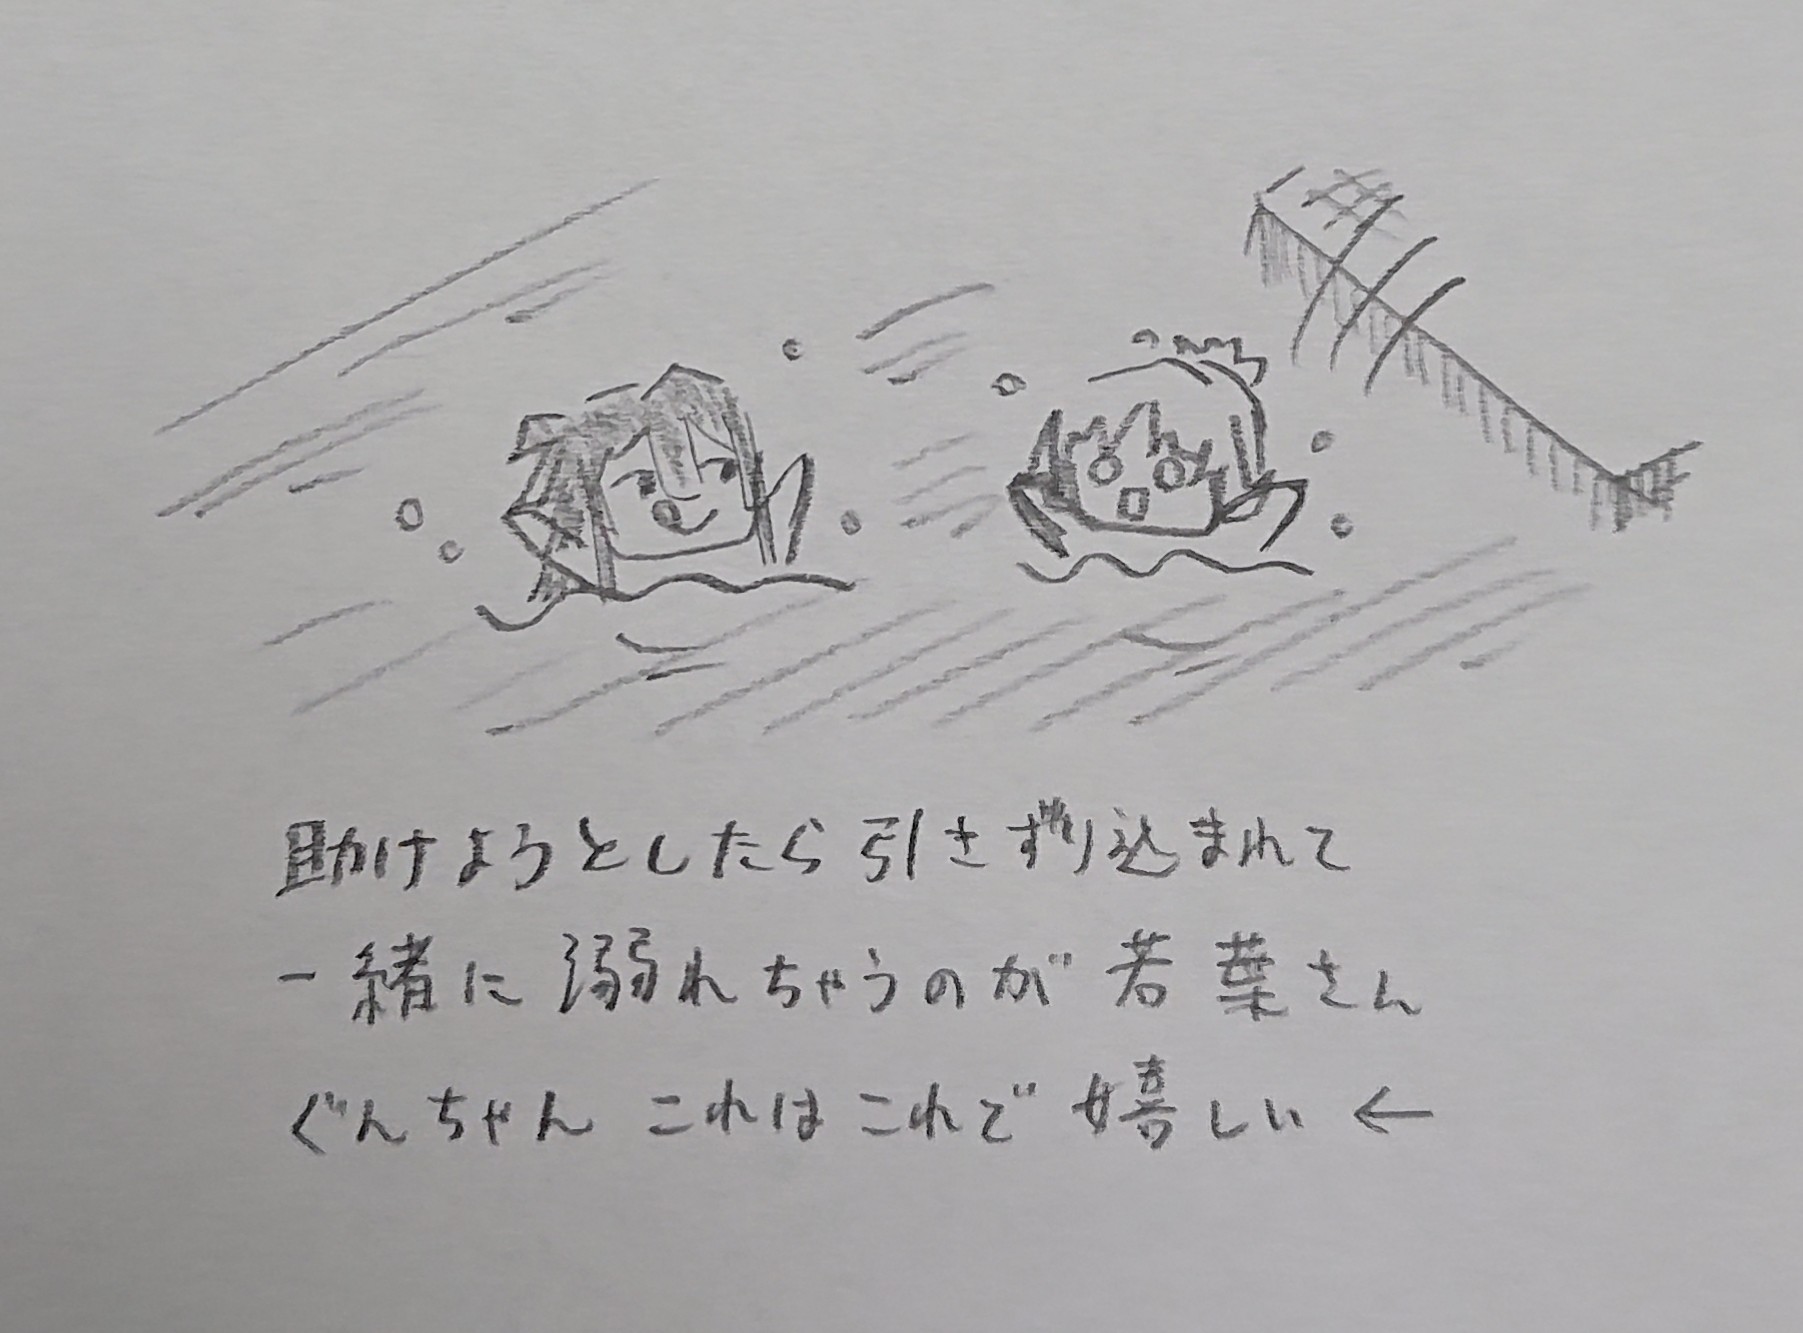 助けようとしたら引きずり込まれて
一緒に溺れちゃうのが若葉さん
ぐんちゃん これはこれで嬉しい ←